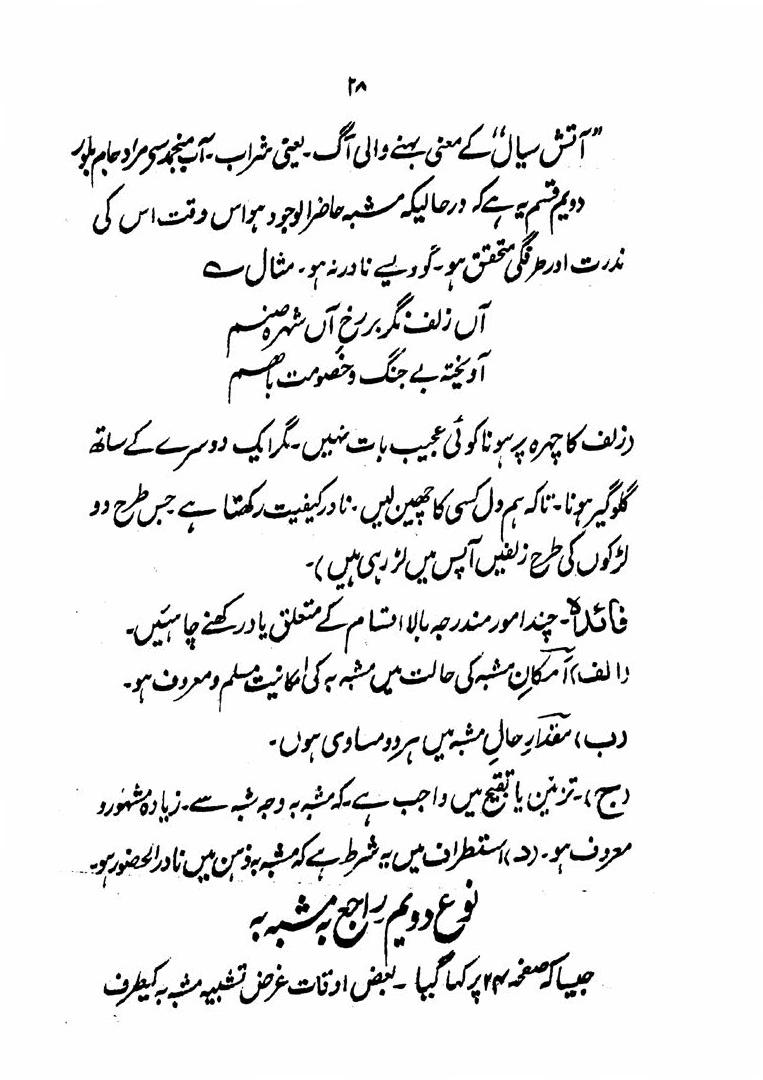 ۲۸
"آتش سیال" کے معنی بہنے والی آگ۔ یعنی شراب۔ آب منجمد سے مراد جام بلور
دویم قسم یہ ہے کہ درحالیکہ مشبہ حاضر الوجود ہو اس وقت اس کی
ندرت اور طرفگی متحقق ہو۔ گو ویسے نادر نہ ہو۔ مثال ؎
آں زلف نگر بر رخِ آں شہرہ صنم
آویختہ بے جنگ و خصومت باہم
(زلف کا چہرہ پر ہونا کوئی عجیب بات نہیں۔ مگر ایک دوسرے کے ساتھ
گلوگیر ہونا۔ تاکہ ہم دل کسی کا چھین لیں۔ نادر کیفیت رکھتا ہے جس طرح دو
لڑکوں کی طرح زلفیں آپس میں لڑ رہی ہیں)۔
فائدہ۔ چند امور مندرجہ بالا اقسام کے متعلق یاد رکھنے چاہئیں۔
(الف) امکانِ مشبہ کی حالت میں مشبہ بہ کی امکانیت مسلم و معروف ہو۔
(ب) مقدارِ حالِ مشبہ میں ہر دو مساوی ہوں۔
(ج)۔ تزئین یا تقبیح میں واجب ہے۔ کہ مشبہ بہ وجہ شبہ سے۔ زیادہ مشہور و
معروف ہو۔ (د) استطراف میں یہ شرط ہے کہ مشبہ بہ ذہن میں نادر الحضور ہو۔
نوع دویم راجع بہ مشبہ بہ
جیسا کہ صفحہ ۲۴ پر کہا گیا۔ بعض اوقات غرض تشبیہ مشبہ بہ کیطرف